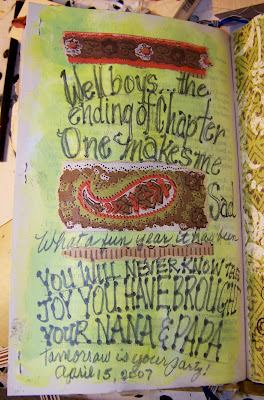 Well boys... the
ending of Chapter
One makes me
Sad
What a fun year it has been
YOU WILL NEVER KNOW THE
JOY YOU HAVE BROUGHT
YOUR NANA & PAPA
Tomorrow is your party!
April 15, 2007